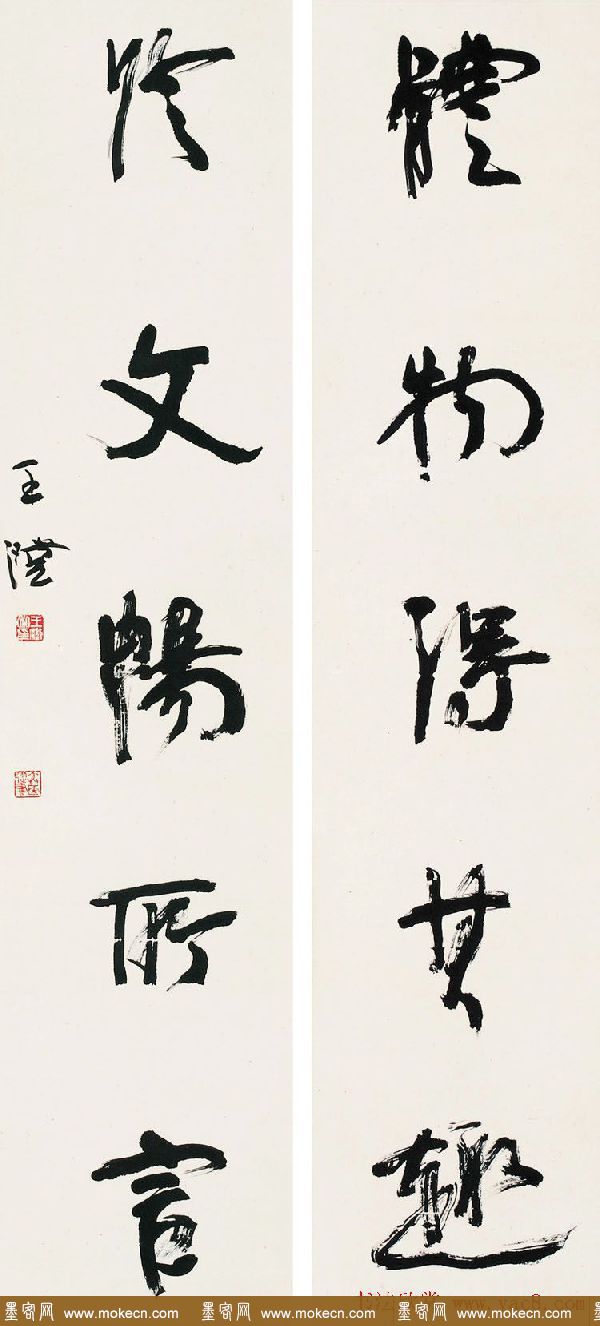 體物得其趣
於文暢所宣
王澄
www.yac8.com
墨客网 www.mokecn.com 墨客网 www.mokecn.com 墨客网 www.mokecn.com